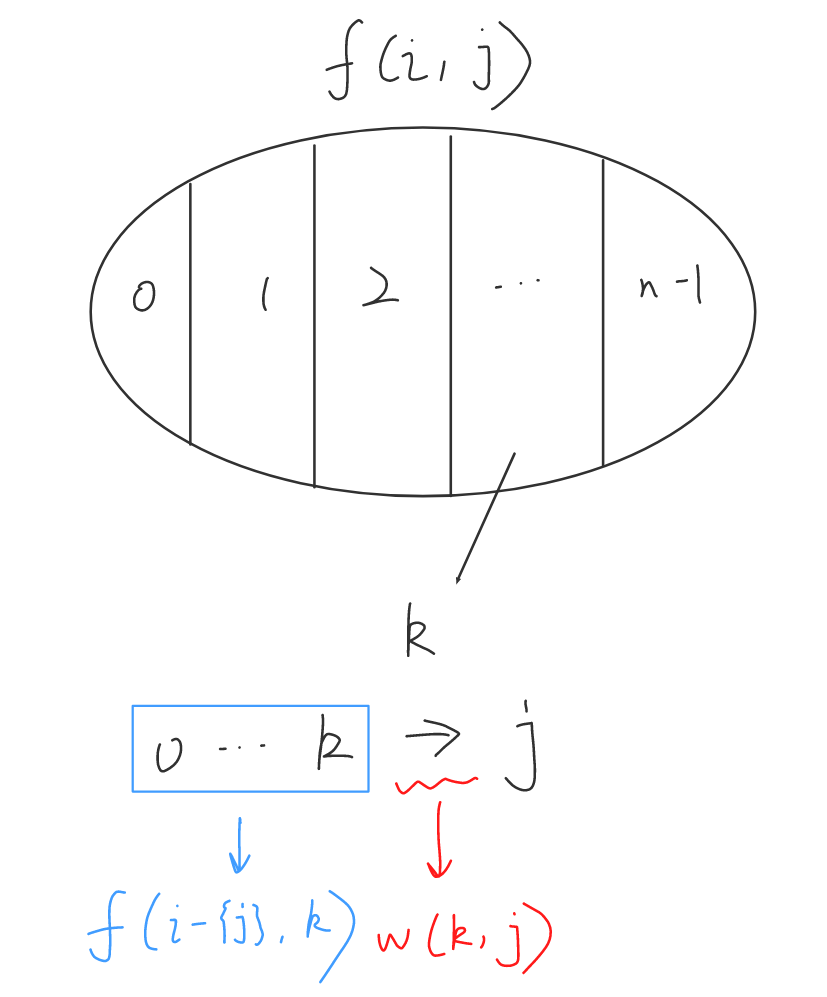 f(i, j)
0 1 2 ... n-1
k
0 ... k → j
f(i-{j}, k) w(k, j)